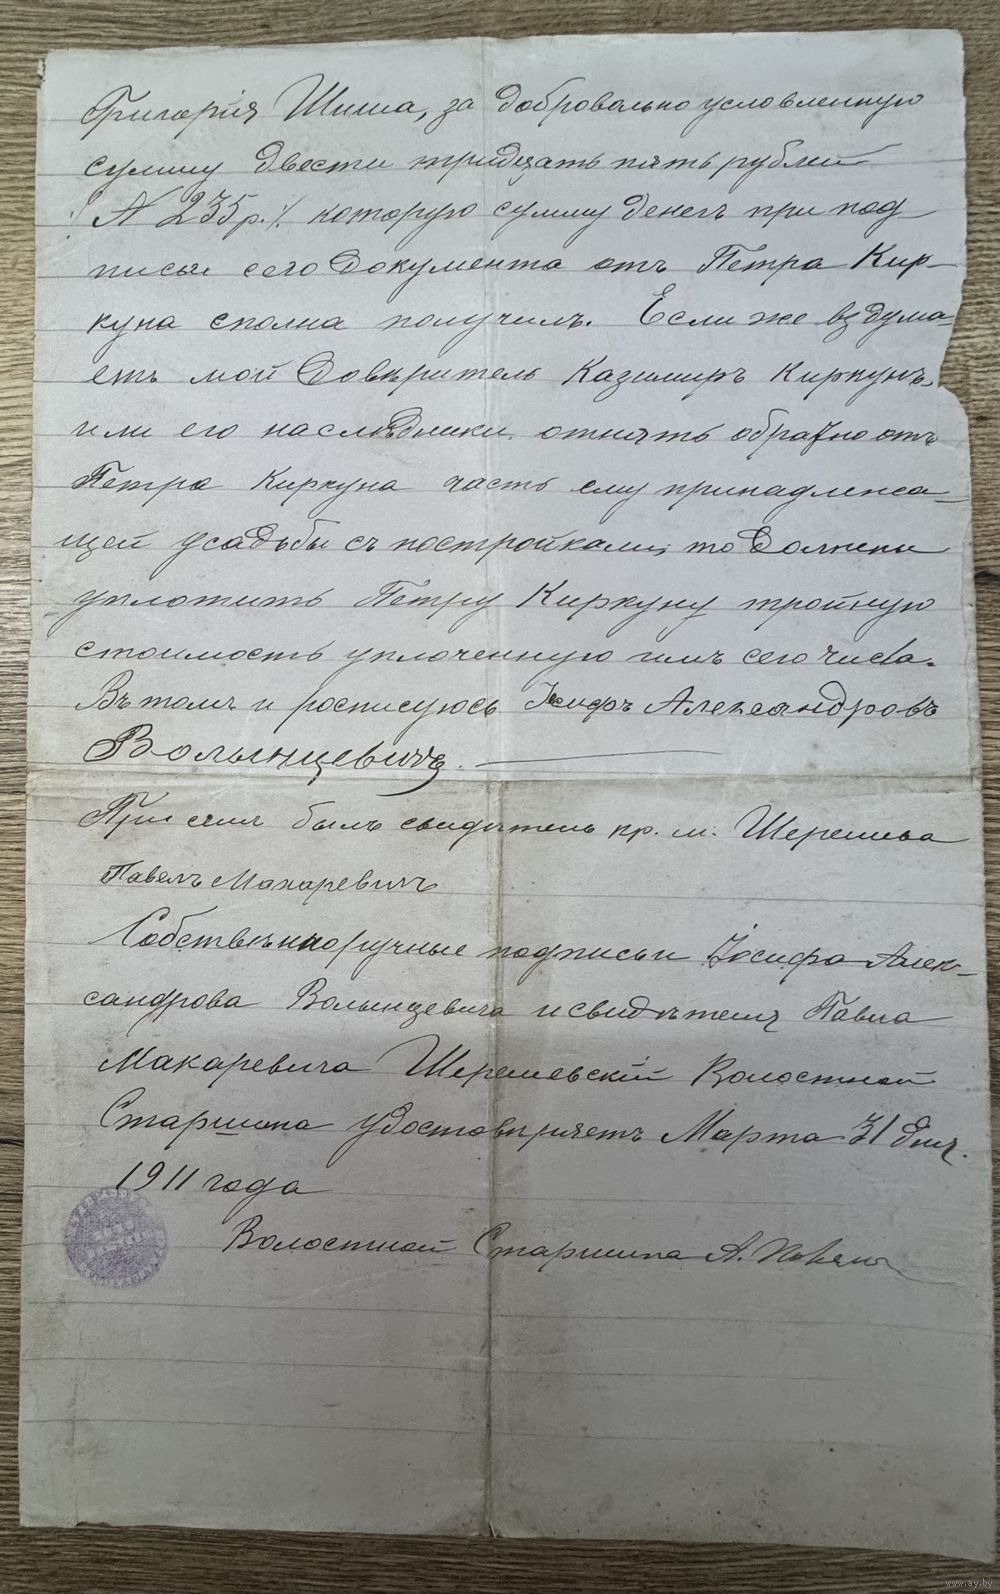 Григорія Шиша, за добровольно условленную
сумму двести тридцать пять рублей
/№ 235 р./ которую сумму денег при под-
письи сего документа отъ Петра Кир-
куна сполна получилъ. Если же вздума-
етъ мой Довѣритель Казимиръ Киркунъ,
или его наслѣдники отнять обратно отъ
Петра Киркуна часть ему принадлежа-
щей усадьбы съ постройками, то должены
уплотить Петру Киркуну тройную
стоимость уплоченную имъ сего числа.
Въ томъ и росписуюсь Іосифъ Александровъ
Волынцевичъ.
При семъ былъ свидѣтель кр. м. Шерешева
Павелъ Макаревичъ
Собственноручные подписьи Іосифа Алек-
сандрова Волынцевича и свидѣтеля Павла
Макаревича Шерешевскій Волостной
Старшина удостовѣряетъ Марта 31 дня
1911 года
Волостной Старшина А.
www.ay.by